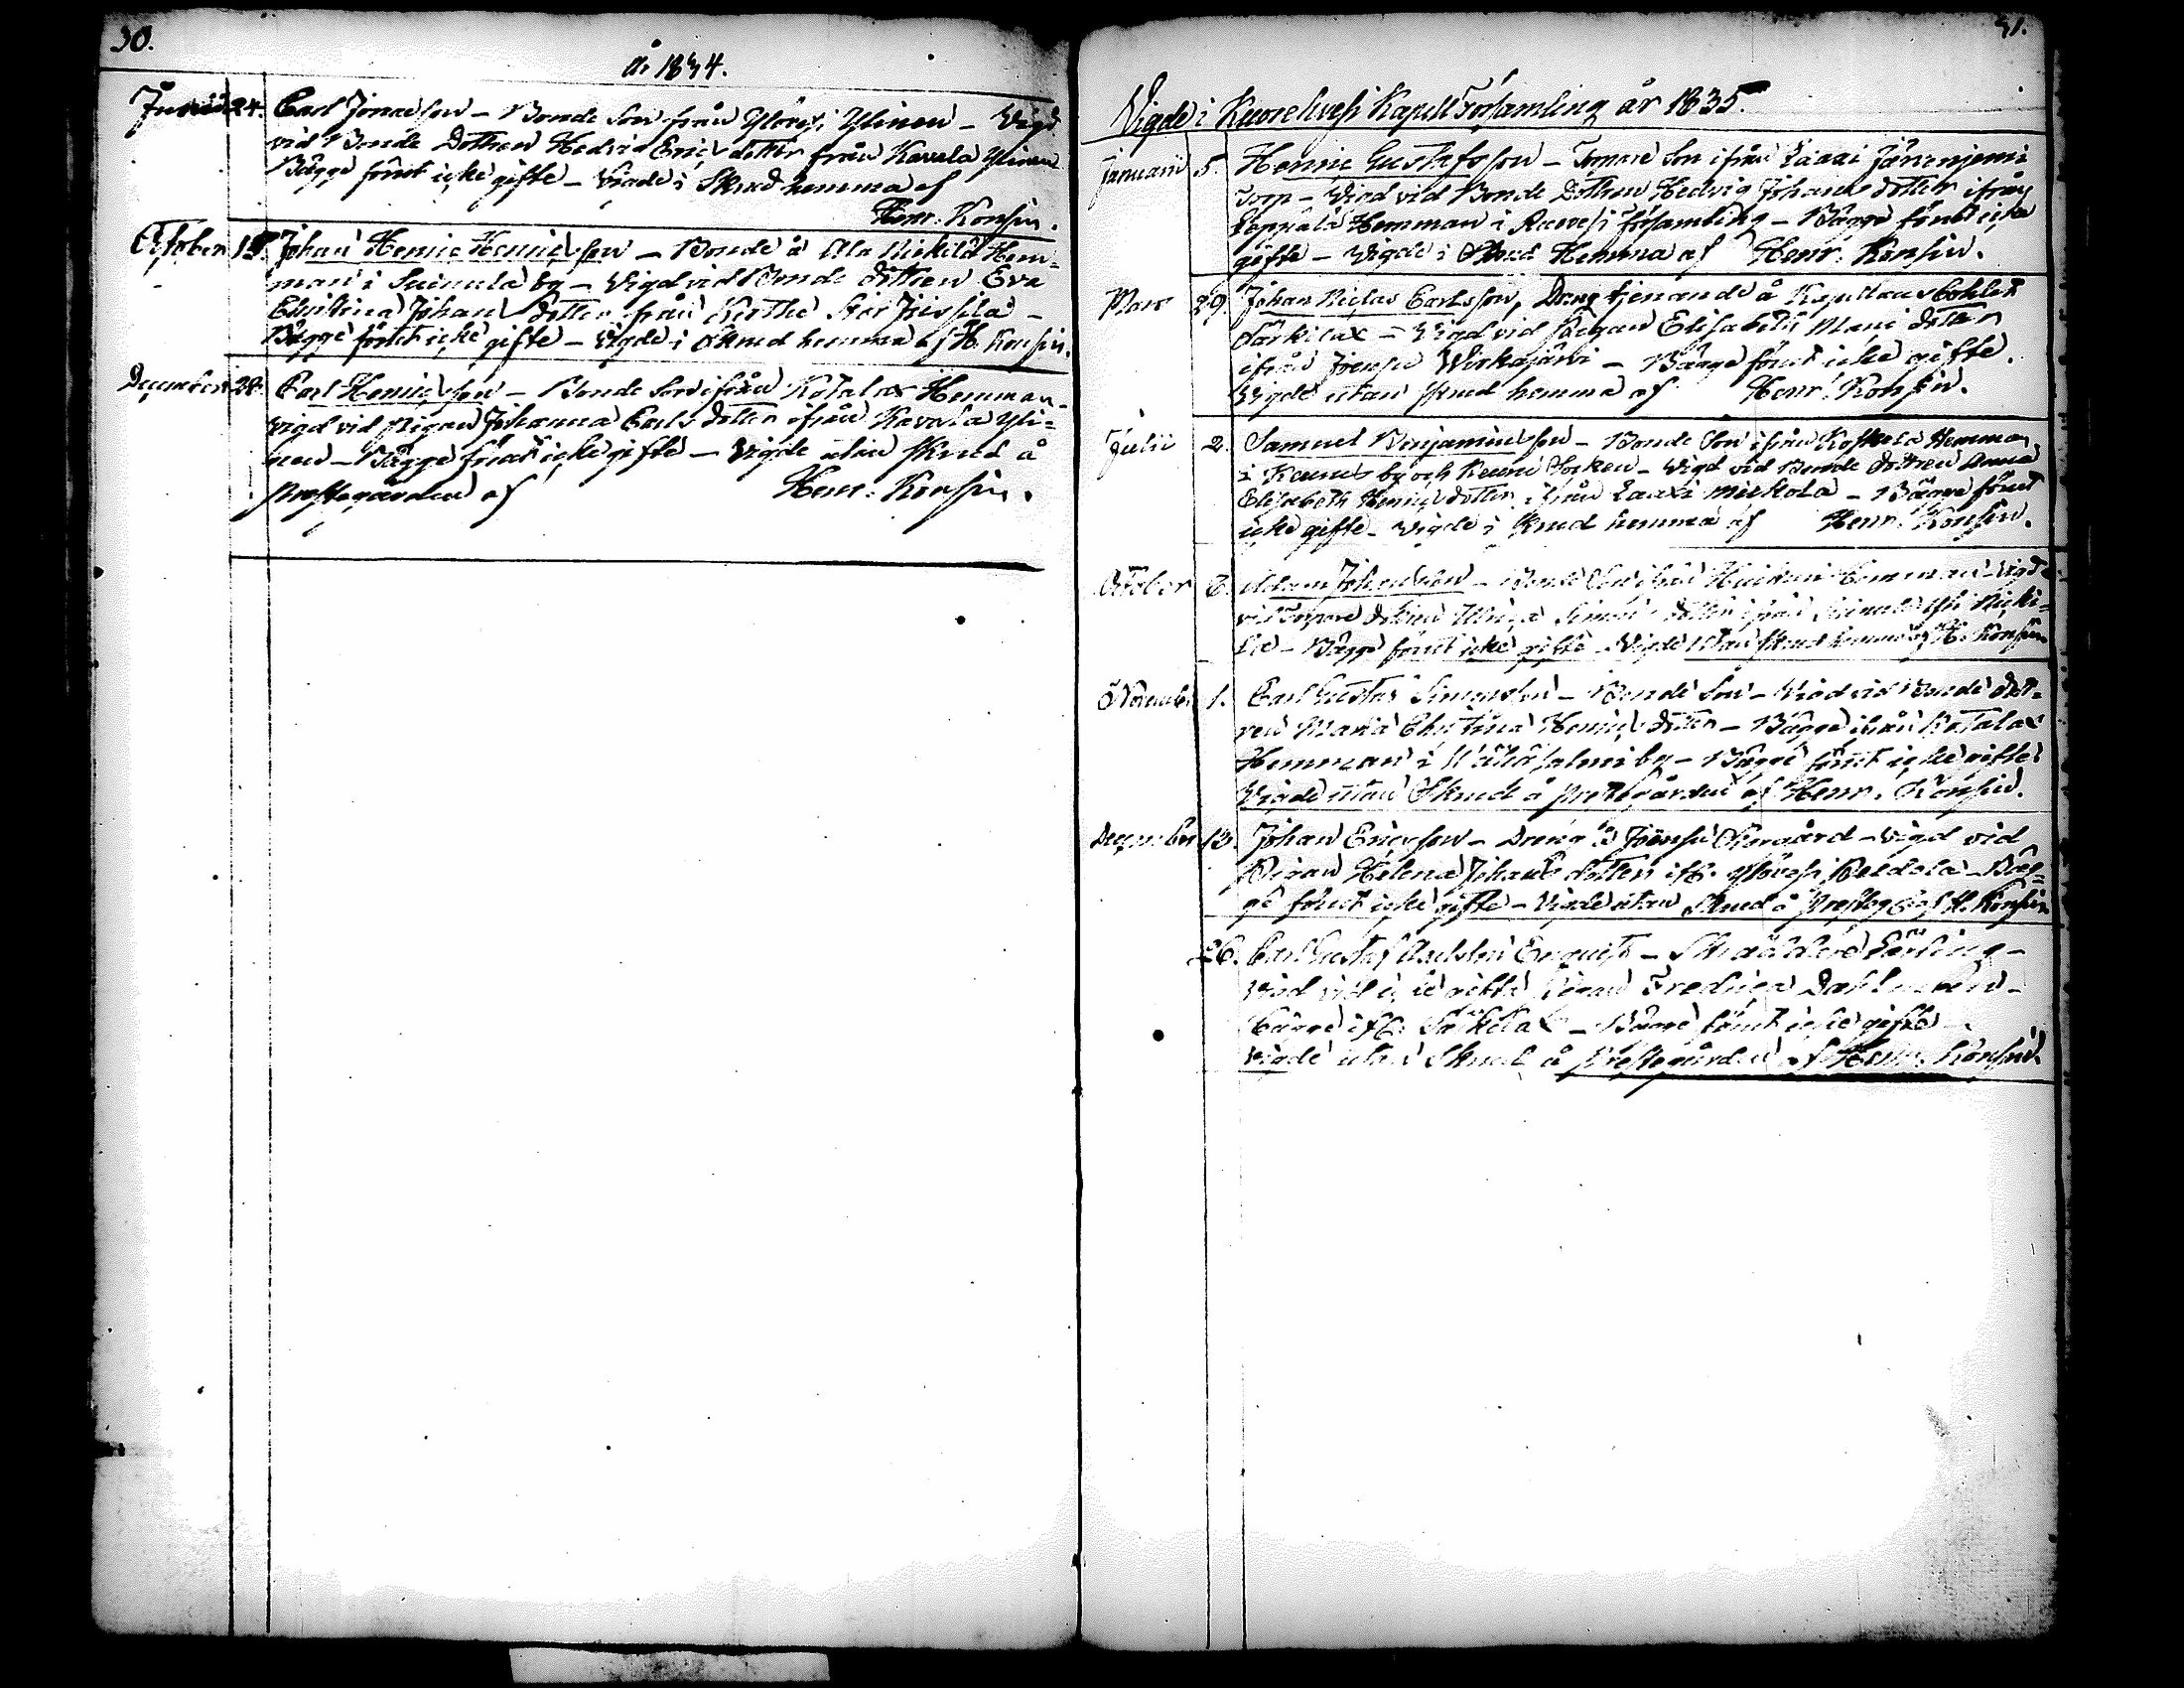 30.
år 1834.
Junii 24. Carl Jonasson – Bonde Son från Ylövesi Ylinen – Vigd
vid Bonde Dottren Hedvid Erics dotter från Kavala Ylinen
Bägge förut icke gifte – Vigde i Skrud hemma af
Henr. Konsin.
October 1 Johan Henric Henricsson – Bonde å Ala Nickilä Hem=
man i Suinula by – Vigd vid Bonde dottren Eva
Christina Johans dotter från Stor Jussila –
Bägge förut icke gifte – Vigde i skrud hemma af H. Konsin.
December 28. Carl Henricsson – Bonde Son ifrån Kotalax Hemman –
vigd vid pigan Johanna Carls dotter ifrån Kavala Yli=
nen – Bägge förut icke gifte – Vigde utan skrud å
Prestegården af Henr. Konsin.
31.
Vigde i Kuorehvesi Kapell Församling år 1835.
Januarii 5. Henric Gustafsson – Torpare Son ifrån Länsi Jänesniemi
Torp – Vigd vid Bonde Dottren Hedvig Johans dotter ifrån
Hemman i Ruovesi församling – Bägge förut icke
gifte – Vigde i Skrud Hemma af Henr. Konsin.
Mars 29. Johan Niclas Carlsson, Dräng tjenande å Kapellans Bohlet
Särkilax – Vigd vid Pigan Elisabeth Mari dotter
ifrån Joensu Wirkajärvi – Bägge förut icke gifte.
Vigde utan skrud hemma af Henr. Konsin.
Julii 2. Samuel Benjaminsson – Bonde Son ifrån Koskela Hemman
i by och Socken – Vigd vid Bonde dottren Anna
Elisabeth Henrics dotter ifrån Länsi Mickola – Bägge förut
icke gifte – Vigde i skrud hemma af Henr. Konsin.
October 6. Adam Johansson – Bonde Son ifrån Hemman – Vigd
vid Torpare dottren Ulrica Simons dotter ifrån Suinula Yli Nicki=
lä – Bägge förut icke gifte – Vigde utan skrud hemma af H. Konsin
November 1. Carl Gustaf Simonsson – Bonde Son – Vigd vid Bonde dott=
ren Maria Christina Henrics dotter – Bägge ifrån Kotalax
Hemman i Wäkäsalmi by – Bägge förut icke gifte
Vigde utan Skrud å prestegården af Henr. Konsin.
December 13. Johan Ericsson – Dreng å Joensu Storgård – Vigd vid
Pigan Helena Johans dotter ifr. Ylövesi – Bäg=
ge förut icke gifte – Vigde utan Skrud å Prestegd af H. Konsin
26. Carl Gustaf Enquist – Skräddare Lärling –
Vigd vid icke gifte pigan Fredrica
Bägge ifr. Särkilax – Bägge förut icke gifte –
Vigde utan Skrud å Prestegården af Henr. Konsin.